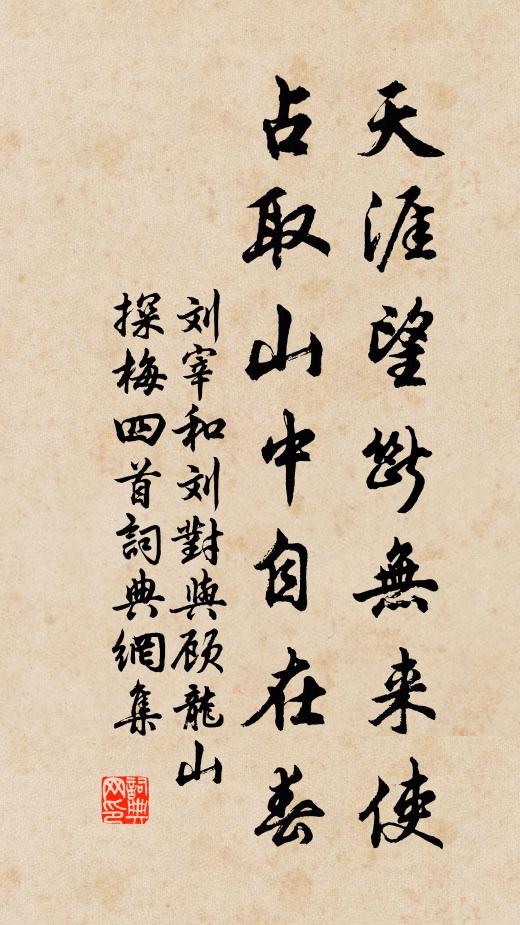 天涯望断無来使
占取山中自在春
刘宰和刘對與顾龍山
探梅四首詞典網集
詞典
网印